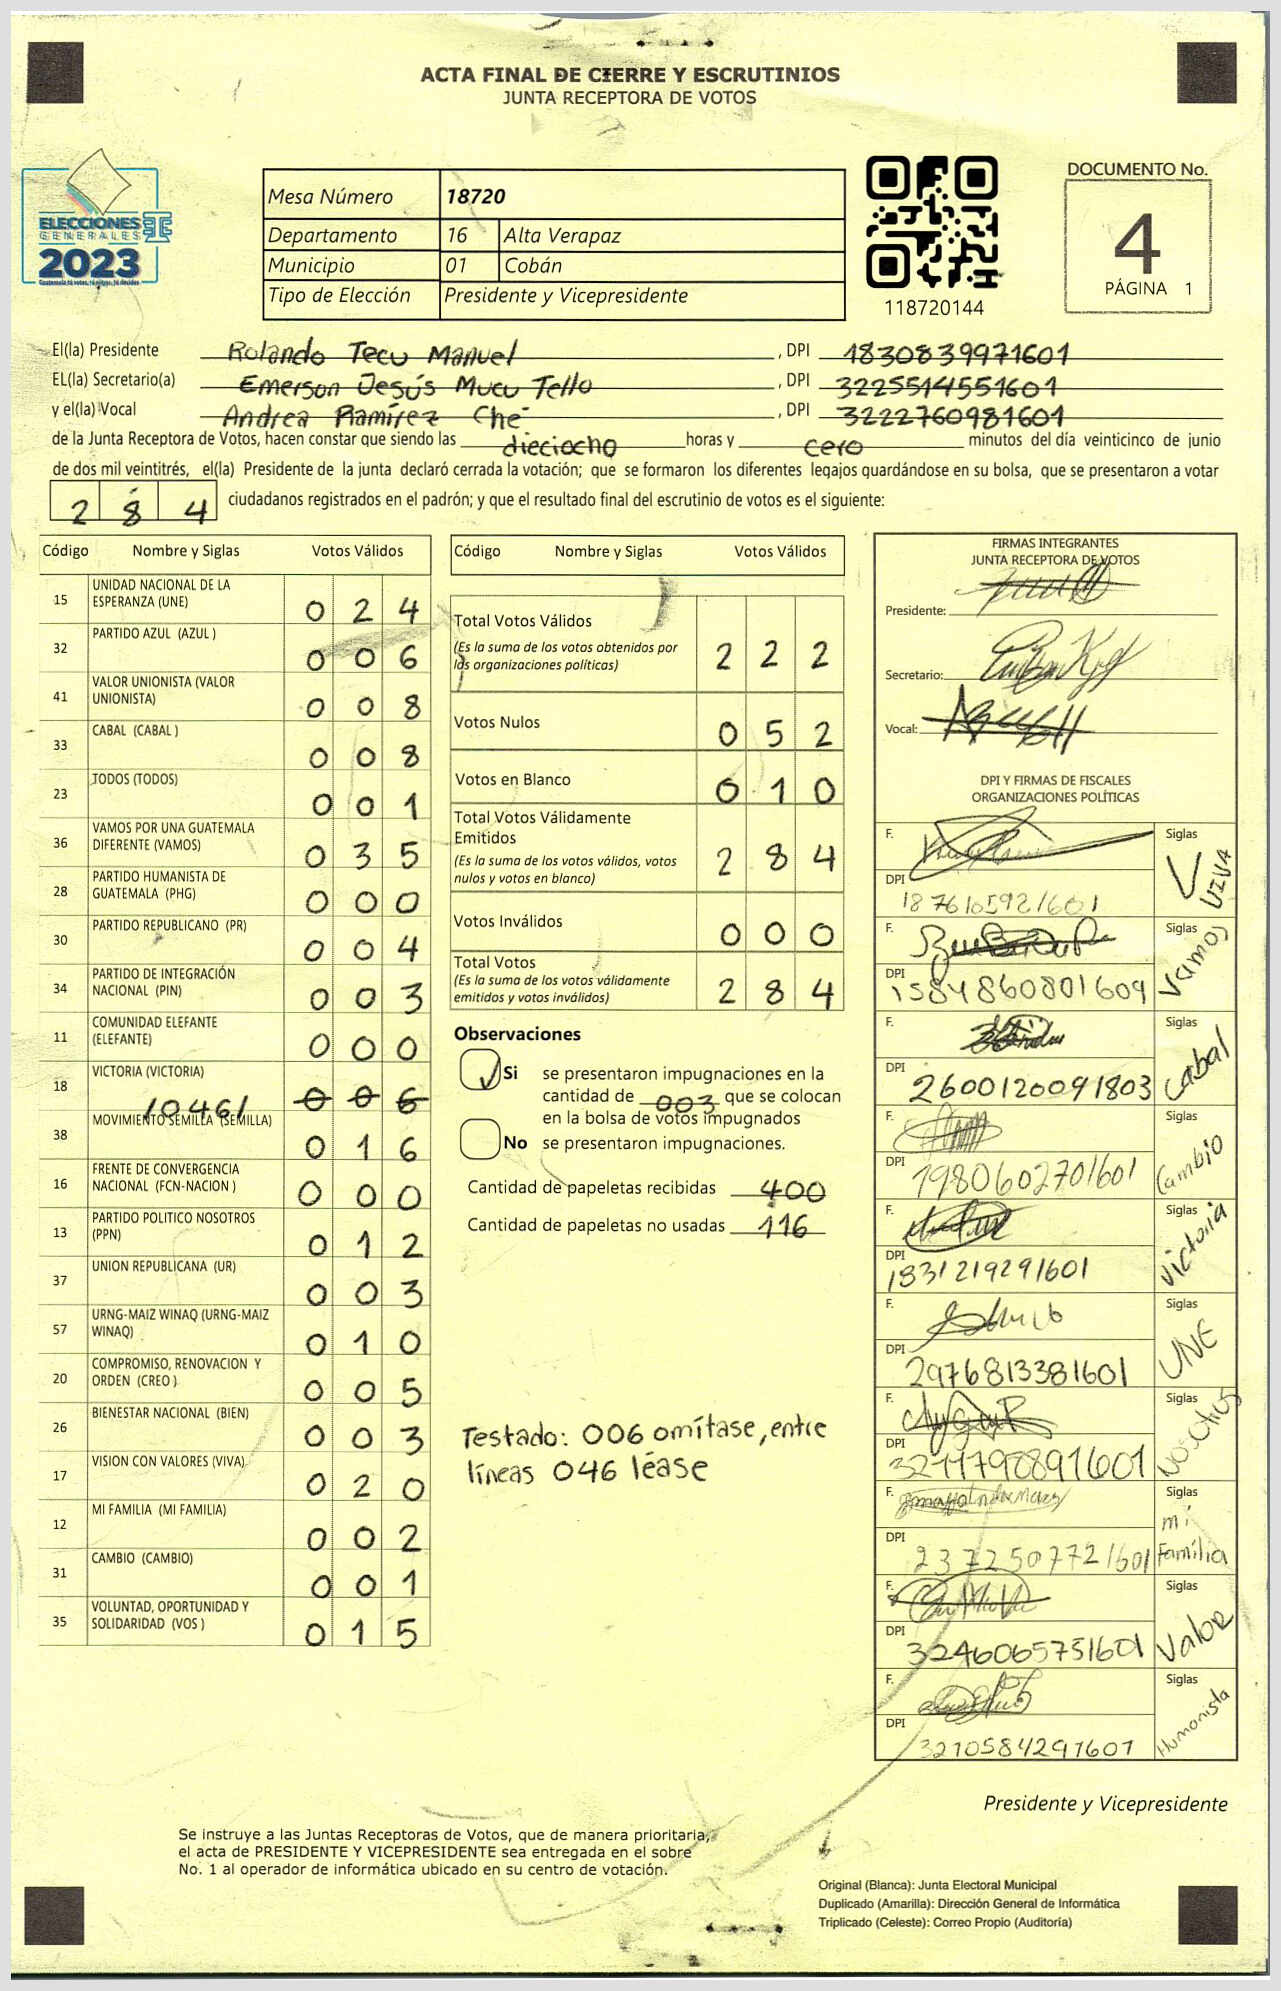 ACTA FINAL DE CIERRE Y ESCRUTINIOS
JUNTA RECEPTORA DE VOTOS
ELECCIONES
GENERALES
2023
Mesa Número 18720
Departamento 16 Alta Verapaz
Municipio 01 Cobán
Tipo de Elección Presidente y Vicepresidente
118720144
DOCUMENTO No.
4
PÁGINA 1
El(la) Presidente Rolando Tecu Manuel , DPI 1830839971601
EL(la) Secretario(a) Emerson Jesús Mucu Tello , DPI 3225514551601
y el(la) Vocal Andrea Ramírez Ché , DPI 3222760981601
de la Junta Receptora de Votos, hacen constar que siendo las dieciocho horas y cero minutos del día veinticinco de junio
de dos mil veintitrés, el(la) Presidente de la junta declaró cerrada la votación; que se formaron los diferentes legajos guardándose en su bolsa, que se presentaron a votar
2 8 4 ciudadanos registrados en el padrón; y que el resultado final del escrutinio de votos es el siguiente:
Código Nombre y Siglas Votos Válidos
15 UNIDAD NACIONAL DE LA
ESPERANZA (UNE) 0 2 4
32 PARTIDO AZUL (AZUL ) 0 0 6
41 VALOR UNIONISTA (VALOR
UNIONISTA) 0 0 8
33 CABAL (CABAL ) 0 0 8
23 TODOS (TODOS) 0 0 1
36 VAMOS POR UNA GUATEMALA
DIFERENTE (VAMOS) 0 3 5
28 PARTIDO HUMANISTA DE
GUATEMALA (PHG) 0 0 0
30 PARTIDO REPUBLICANO (PR) 0 0 4
34 PARTIDO DE INTEGRACIÓN
NACIONAL (PIN) 0 0 3
11 COMUNIDAD ELEFANTE
(ELEFANTE) 0 0 0
18 VICTORIA (VICTORIA)
/0461 0 0 6
38 MOVIMIENTO SEMILLA (SEMILLA) 0 1 6
16 FRENTE DE CONVERGENCIA
NACIONAL (FCN-NACION ) 0 0 0
13 PARTIDO POLITICO NOSOTROS
(PPN) 0 1 2
37 UNION REPUBLICANA (UR) 0 0 3
57 URNG-MAIZ WINAQ (URNG-MAIZ
WINAQ) 0 1 0
20 COMPROMISO, RENOVACION Y
ORDEN (CREO ) 0 0 5
26 BIENESTAR NACIONAL (BIEN) 0 0 3
17 VISION CON VALORES (VIVA) 0 2 0
12 MI FAMILIA (MI FAMILIA) 0 0 2
31 CAMBIO (CAMBIO) 0 0 1
35 VOLUNTAD, OPORTUNIDAD Y
SOLIDARIDAD (VOS ) 0 1 5
Código Nombre y Siglas Votos Válidos
Total Votos Válidos
(Es la suma de los votos obtenidos por
las organizaciones políticas) 2 2 2
Votos Nulos 0 5 2
Votos en Blanco 0 1 0
Total Votos Válidamente
Emitidos
(Es la suma de los votos válidos, votos
nulos y votos en blanco) 2 8 4
Votos Inválidos 0 0 0
Total Votos
(Es la suma de los votos válidamente
emitidos y votos inválidos) 2 8 4
Observaciones
Si se presentaron impugnaciones en la
cantidad de 003 que se colocan
en la bolsa de votos impugnados
No se presentaron impugnaciones.
Cantidad de papeletas recibidas 400
Cantidad de papeletas no usadas 116
Testado: 006 omítase, entre
líneas 046 léase
FIRMAS INTEGRANTES
JUNTA RECEPTORA DE VOTOS
Presidente:
Secretario:
Vocal:
DPI Y FIRMAS DE FISCALES
ORGANIZACIONES POLÍTICAS
F. Siglas
DPI 1876105921601
F. Siglas Vamos
DPI 1584860801609
F. Siglas Cabal
DPI 2600120091803
F. Siglas Cambio
DPI 1980602701601
F. Siglas Victoria
DPI 1831219291601
F. Siglas UNE
DPI 2976813381601
F. Siglas Nosotros
DPI
F. Siglas mi familia
DPI 2372507721601
F. Siglas Valor
DPI 3246065751601
F. Siglas Humanista
DPI 3210584291601
Presidente y Vicepresidente
Se instruye a las Juntas Receptoras de Votos, que de manera prioritaria,
el acta de PRESIDENTE Y VICEPRESIDENTE sea entregada en el sobre
No. 1 al operador de informática ubicado en su centro de votación.
Original (Blanca): Junta Electoral Municipal
Duplicado (Amarilla): Dirección General de Informática
Triplicado (Celeste): Correo Propio (Auditoría)